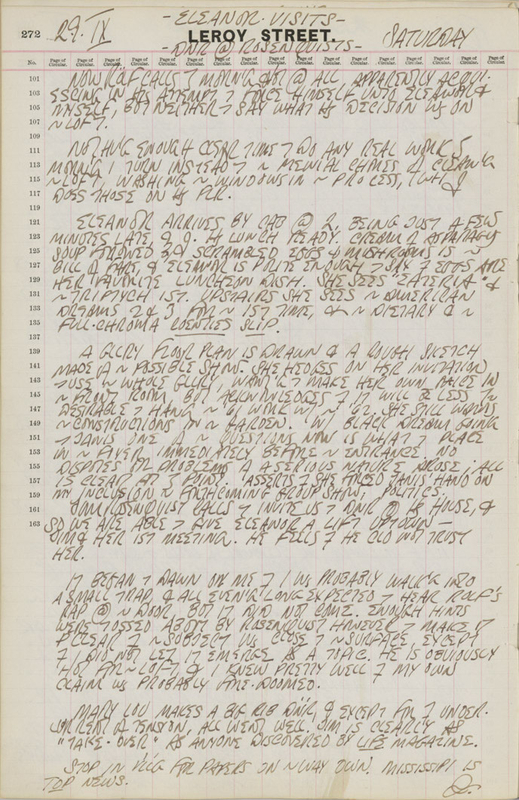 - ELEANOR VISITS -
272 29. IX LEROY STREET. SATURDAY
- DNR @ ROSENQUISTS -
No. Page of Circular. Page of Circular. Page of Circular. Page of Circular. Page of Circular. Page of Circular. Page of Circular. Page of Circular. Page of Circular. Page of Circular. Page of Circular. Page of Circular. Page of Circular. Page of Circular. Page of Circular. Page of Circular.
101 ROLF CALLS @ ALL APPARENTLY ACQUI-
103 ESCING IN HIS ATTEMPT FORCE HIMSELF UNTO ELEANOR &
105 MYSELF, BUT NEITHER SAY WHAT HIS DECISION IS ON
107 ~ LOFT.
109
111 NOTHING ENOUGH CLEAR TIME DO ANY REAL WORK
113 MORNG I TURN INSTEAD ~ MENIAL CHORES OF CLEAN'G
115 ~ LOFT, WASHING ~ WINDOWS IN ~ PROCESS,
117 DOES THOSE ON HIS FLR.
119
121 ELEANOR ARRIVES BY CAB @ 2, BEING JUST A FEW
123 MINUTES LATE, & LUNCH READY. CREAM OF ASPARAGUS
125 SOUP FOLLOWED BY SCRAMBLED EGGS & MUSHROOMS IS ~
127 BILL OF FARE, & ELEANOR IS POLITE ENOUGH SAY EGGS ARE
129 HER FAVORITE LUNCHEON DISH. SHE SEES "EATERIA" &
131 ~ TRIPTYCH 1ST. UPSTAIRS SHE SEES ~ AMERICAN
133 DREAMS 2 & 3 FOR ~ 1ST TIME, & ~ DIETARY & ~
135 FULL-CHROMA SLIP.
137
139 A GLLRY FLOOR PLAN IS DRAWN & A ROUGH SKETCH
141 MADE OF ~ POSSIBLE SHOW. SHE HEDGES ON HER INVITATION
143 USE ~ WHOLE GLLRY, WANT'G MAKE HER OWN IN
145 ~ FRONT ROOM, BUT ACKNOWLEDGES IT WILL BE LESS
147 DESIRABLE HANG ~ '61 WORK W/ ~ '62. SHE STILL WANTS
149 ~ CONSTRUCTIONS IN ~ GARDEN. W/ BLACK DREAM GOING
151 JANIS ONE OF ~ QUESTIONS NOW IS WHAT PLACE
153 IN ~ FOYER IMMEDIATELY BEFORE ~ ENTRANCE. NO
155 DISPUTES OR PROBLEMS OF A SERIOUS NATURE AROSE; ALL
157 IS CLEAR AT POINT. ASSERTS SHE FORCED JANIS' HAND ON
159 MY INCLUSION FORTHCOMING GROUP SHOW, POLITICS.
161 JIM ROSENQUIST CALLS INVITE US DNR @ HIS HOUSE, &
163 SO WE ARE ABLE GIVE ELEANOR A LIFT UPTOWN —
JIM & HER 1ST MEETING. HE FEELS HE CLD NOT TRUST
HER.
IT BEGAN DAWN ON ME I WS PROBABLY WALK'G INTO
A SMALL TRAP, & ALL EVEN'G LONG EXPECTED HEAR ROLF'S
RAP @ ~ DOOR. BUT IT DID NOT COME. ENOUGH HINTS
WERE TOSSED ABOUT BY ROSENQUIST HOWEVER MAKE IT
CLEAR ~ SUBJECT WS CLOSE ~ SURFACE EXCEPT
I DID NOT LET IT EMERGE AS A TOPIC. HE IS OBVIOUSLY
HOT FOR ~ LOFT & I KNEW PRETTY WELL MY OWN
CLAIM WS PROBABLY DOOMED.
MARY LOU MAKES A RIB DNR, & EXCEPT FOR UNDER-
CURRENT OF TENSION, ALL WENT WELL. JIM IS CLEARLY AS
"TAKE-OVER" AS ANYONE DISCOVERED BY LIFE MAGAZINE.
STOP IN VLLG FOR PAPERS ON ~ WAY DWN. MISSISSIPPI IS
TOP NEWS.